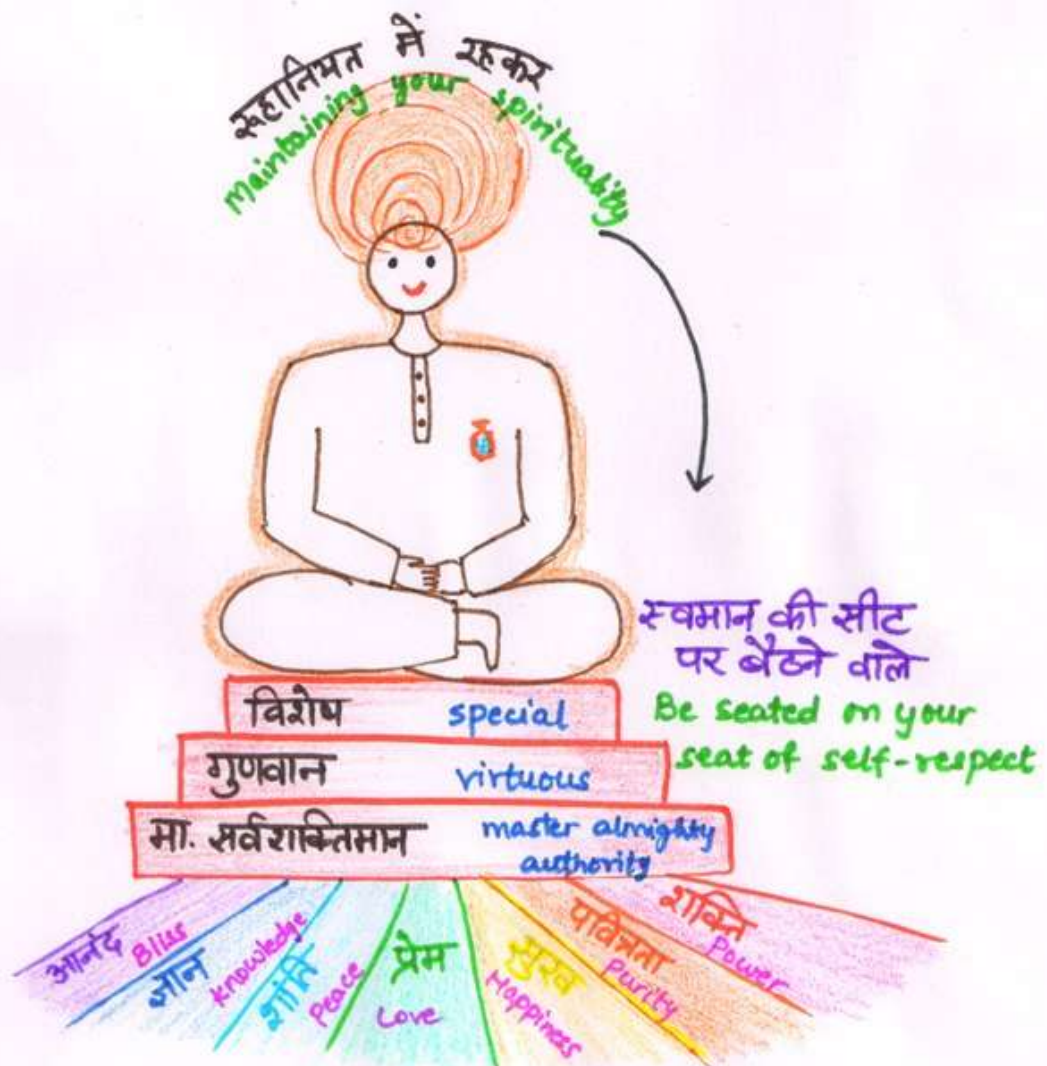 रूहानियत में रहकर
Maintaining your spirituality
स्वमान की सीट
पर बैठने वाले
Be seated on your
seat of self-respect
विशेष special
गुणवान virtuous
मा. सर्वशक्तिमान master almighty
authority
आनंद Bliss
ज्ञान knowledge
शांति Peace
प्रेम Love
सुख Happiness
पवित्रता Purity
शक्ति Power